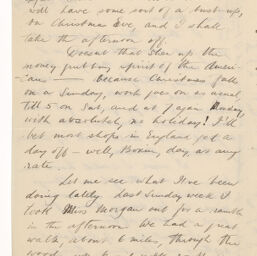 will have some sort of a bust-up,
on Christmas Eve, and I shall
take the afternoon off.
Doesn't that show up the
money grubbing spirit of the Ameri-
cans — because Christmas falls
on a Sunday, work goes on as usual
till 5 on Sat, and at 7 again Monday
with absolutely no holiday! I'll
bet most shops in England get a
day off – well, Boxing day, at any
rate.
Let me see what I've been
doing lately. Last Sunday week I
took Miss Morgan out for a ramble
in the afternoon. We had a great
walk, about 6 miles, through the
woods